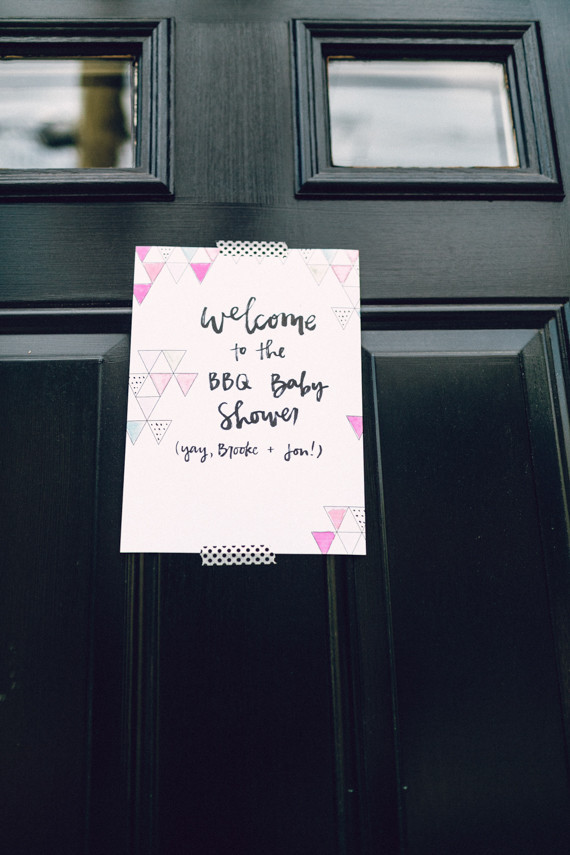 welcome
to the
BBQ Baby
Shower
(yay, Brooke + Jon!)